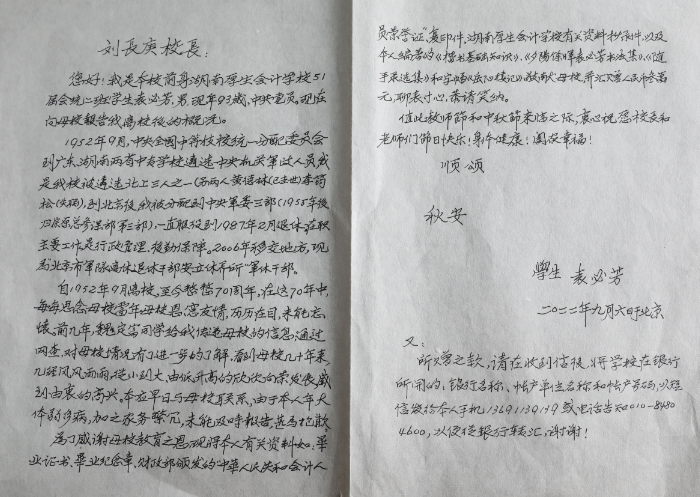 刘長庚校長：
您好！我是本校前身湖南厚生会计学校51
届会统二班学生袁必芳，男，现年93岁，中共党员。现在
向母校报告我离校后的概况。
1952年9月，中央全国中等技校统一分配委员会
到广东、湖南两省中专学校遴选中央机关军政人员，我
是我校被遴选北上三人之一（另两人黄
到北京后，我被分配到中央军委三部（1955年后
归 总参谋部第三部），一直服役到1987年2月退休。在职
主要工作是行政管理，后勤保障。2006年移交地方，现
为北京市军队离休退休干部安立休养所"军休干部。
自1952年9月离校，至今整整70周年，在这70年中，
每每思念母校当年母校恩、窗友情，历历在目，未能忘
怀。前几年，魏定 同学给我传递母校的信息，通过
网查，对母校情况有了进一步的了解，看到母校几十年来
几经风风雨雨，从小到大，由低升高的欣欣向荣发展，感
到由衷的高兴。本应早日与母校联系，由于本人年大
体弱多病，加之家务繁冗，未能及时报告，甚为抱歉。
为了感谢母校教育之恩，现将本人有关资料如，毕
业证书、毕业纪念章、财政部颁发的"中华人民共和会计人
员荣誉证"复印件，湖南厚生会计学校有关资料 件，以及
本人编著的《楷书基础知识》、《夕陽保晖袁必芳书法集》、《
手 选集》和字幅《 》敬献母校，并汇 人民币叁萬
元，聊表寸心，恭请笑纳。
值此教师節和中秋節来临之际，衷心祝您校長和
老师们節日快乐！身体健康！阖家幸福！
顺颂
秋安
學生 袁必芳
二〇二二年九月六日于北京
又：
所贈之款，请在收到信後，将学校在银行
所用的，银行名称、帐户单位名称和帐户号码，以短
信发给本人手机13691139139或电话告知010-8480
4600，以便侭银行转汇，谢谢！